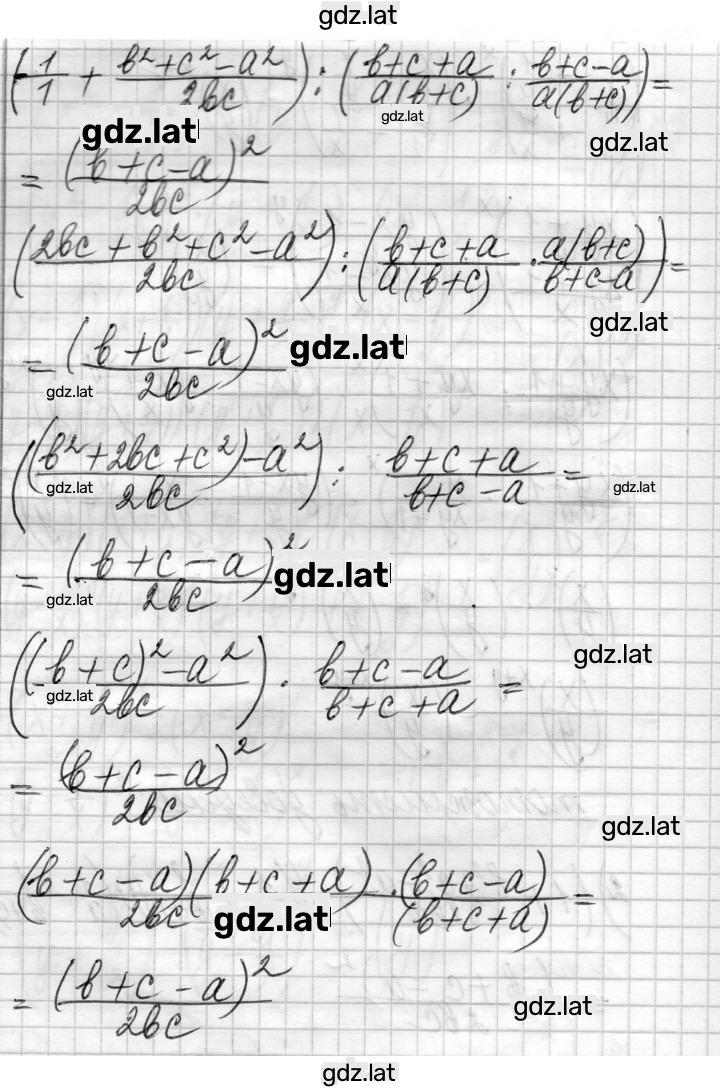 gdz.lat
(1/1 + (b²+c²-a²)/2bc) : ((b+c+a)/a(b+c) : (b+c-a)/a(b+c)) =
gdz.lat gdz.lat gdz.lat
= (b+c-a)²/2bc
((2bc+b²+c²-a²)/2bc) : ((b+c+a)/a(b+c) · a(b+c)/(b+c-a)) =
gdz.lat
= (b+c-a)²/2bc gdz.lat
gdz.lat
(((b²+2bc+c²)-a²)/2bc) : (b+c+a)/(b+c-a) =
gdz.lat gdz.lat
= (b+c-a)²/2bc gdz.lat
gdz.lat
(((b+c)²-a²)/2bc) · (b+c-a)/(b+c+a) =
gdz.lat gdz.lat
= (b+c-a)²/2bc
gdz.lat
(b+c-a)(b+c+a)/2bc · (b+c-a)/(b+c+a) =
gdz.lat
= (b+c-a)²/2bc
gdz.lat
gdz.lat